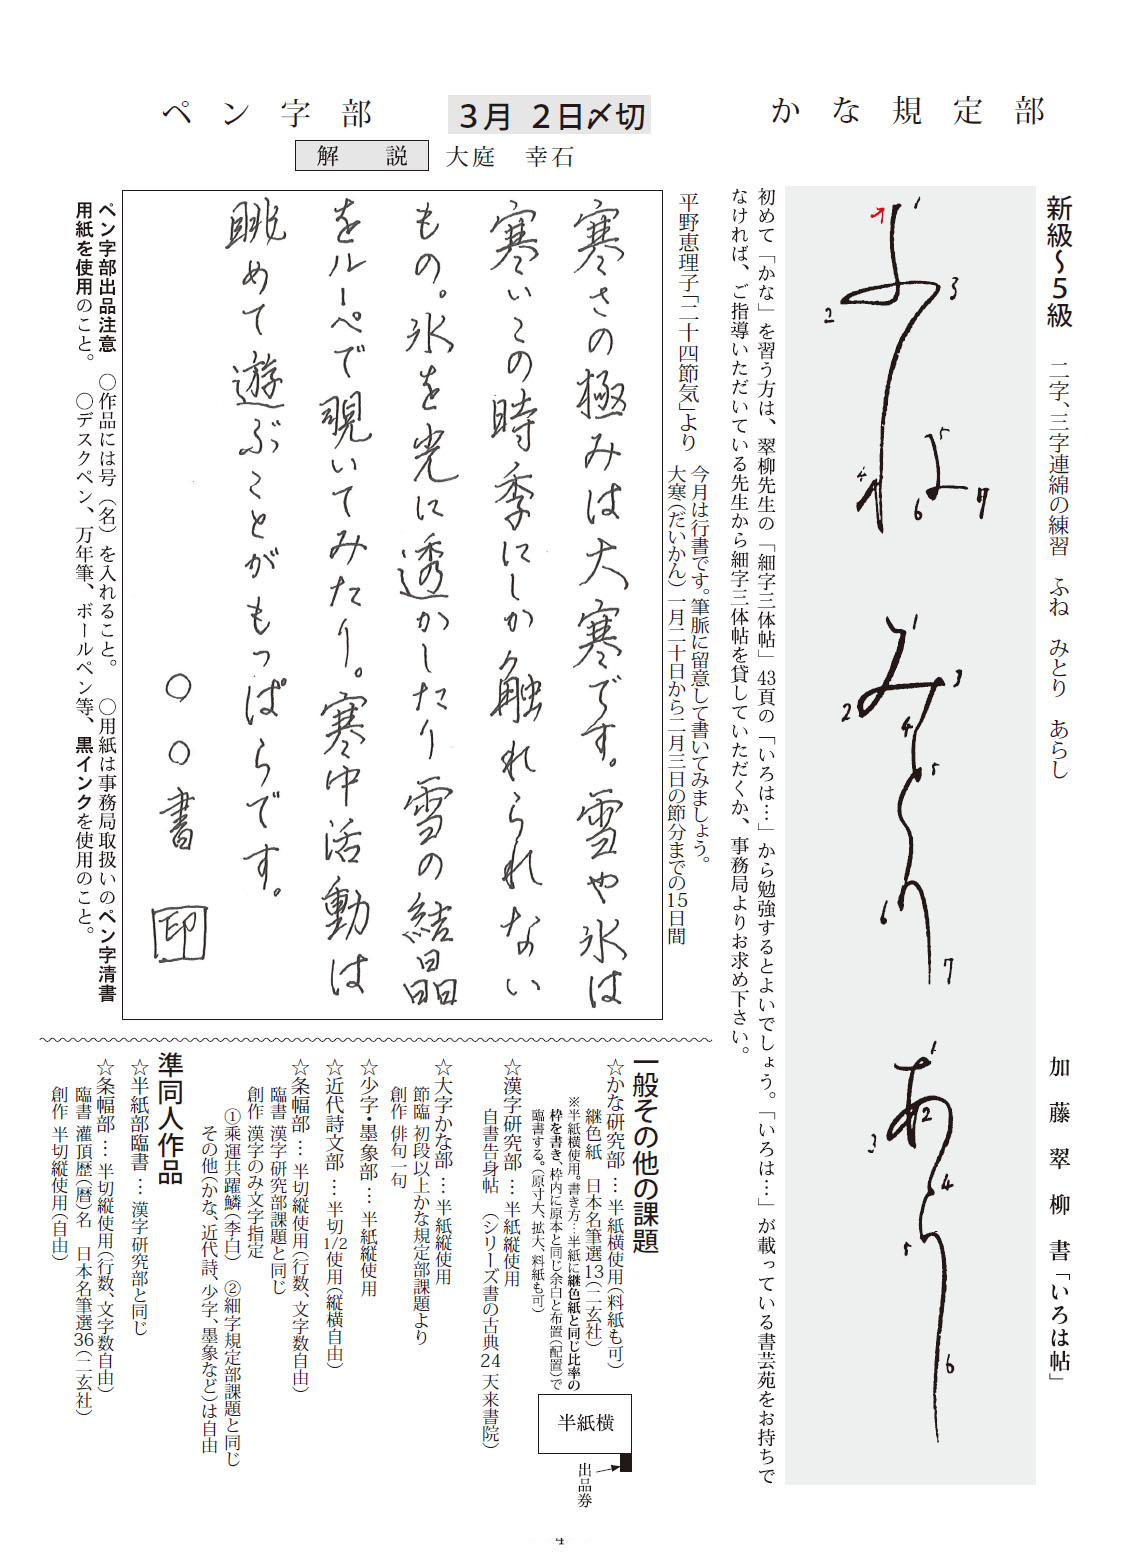 かな規定部
新級〜５級　二字、三字連綿の練習　ふね　みとり　あらし
加藤翠柳書「いろは帖」
ふね
1
2
3
4
5
6
7
みとり
1
2
3
4
5
6
7
あらし
1
2
3
4
5
6
初めて「かな」を習う方は、翠柳先生の「細字三体帖」43頁の「いろは…」から勉強するとよいでしょう。「いろは…」が載っている書芸苑をお持ちで
なければ、ご指導いただいている先生から細字三体帖を貸していただくか、事務局よりお求め下さい。
３月 ２日〆切
ペン字部
解　説　大庭　幸石
平野恵理子「二十四節気」より
今月は行書です。筆脈に留意して書いてみましょう。
大寒（だいかん）一月二十日から二月三日の節分までの15日間
寒さの極みは大寒です。雪や氷は
寒いこの時季にしか触れられない
もの。氷を光に透かしたり雪の結晶
をルーペで覗いてみたり。寒中活動は
眺めて遊ぶことがもっぱらです。
○○書 印
ペン字部出品注意　○作品には号（名）を入れること。　○用紙は事務局取扱いのペン字清書
用紙を使用のこと。　○デスクペン、万年筆、ボールペン等、黒インクを使用のこと。
一般その他の課題
☆かな研究部 … 半紙横使用（料紙も可）
継色紙　日本名筆選13（二玄社）
※半紙横使用。書き方…半紙に継色紙と同じ比率の
枠を書き、枠内に原本と同じ余白と布置（配置）で
臨書する。（原寸大、拡大、料紙も可）
半紙横
出品券
☆漢字研究部 … 半紙縦使用
自書告身帖　（シリーズ書の古典24 天来書院）
☆大字かな部 … 半紙縦使用
節臨 初段以上かな規定部課題より
創作 俳句一句
☆少字・墨象部 … 半紙縦使用
☆近代詩文部 … 半切1/2使用（縦横自由）
☆条幅部 … 半切縦使用（行数、文字数自由）
臨書 漢字研究部課題と同じ
創作 漢字のみ文字指定
①乗運共躍鱗（李白）　②細字規定部課題と同じ
その他（かな、近代詩、少字、墨象など）は自由
準同人作品
☆半紙部臨書 … 漢字研究部と同じ
☆条幅部 … 半切縦使用（行数、文字数自由）
臨書 灌頂歴（暦）名　日本名筆選36（二玄社）
創作 半切縦使用（自由）